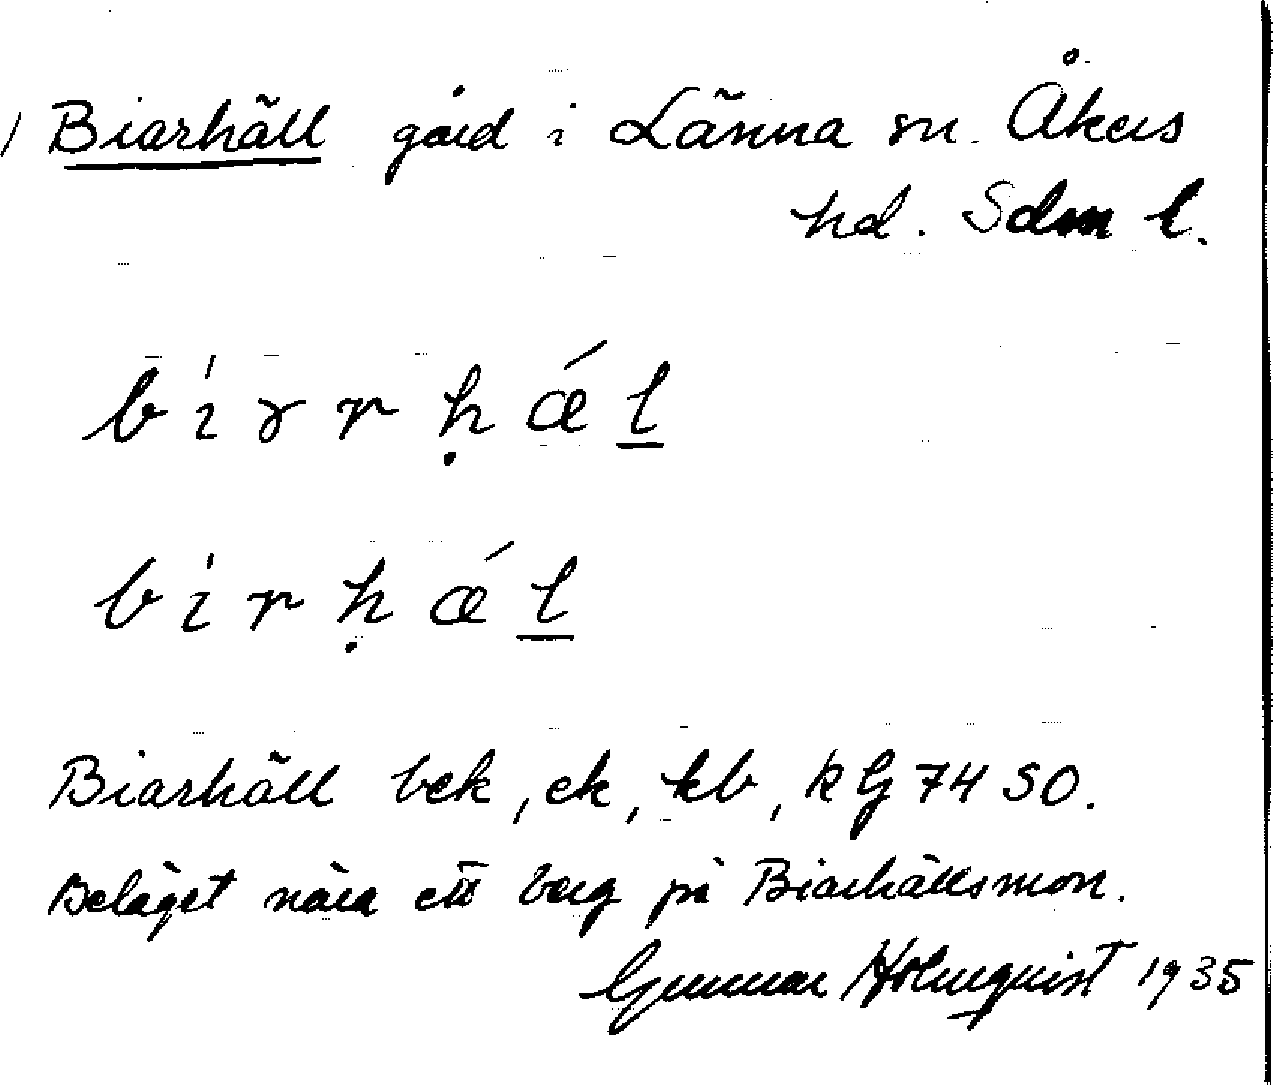 1 Biarhäll gård i Länna sn. Åkers
hd. Sdm l.
bíɤrḥǽl
bírḥǽl
Biarhäll bek, ek, kb, kG 74 SO.
Beläget nära ett berg på Biarhällsmon.
Gunnar Holmquist 1935